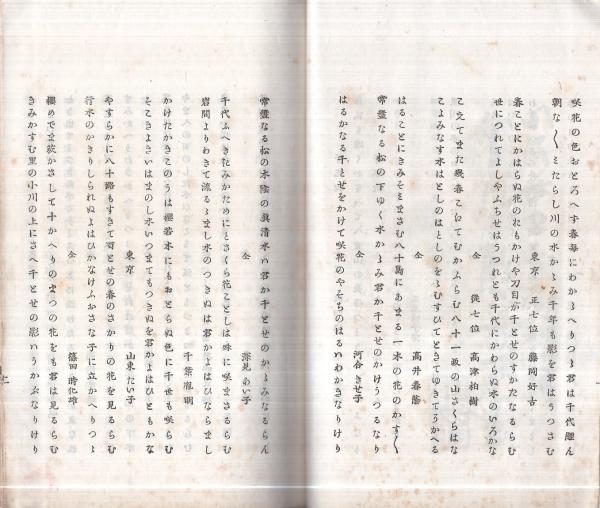 咲花の色おとろへす春每にわかゝへりつゝ君は千代經ん
朝な〱みたらし川の水かゝみ千年も影を君はうつさむ
東京 正七位 藤岡好古
春ことにかはらぬ花のおもかけや刀自か千とせのすかたなるらむ
世につれてよしやふちせはうつれとも千代にかわらぬ水のいろかな
仝 從七位 高津柏樹
こえてまた幾春こ てむかふらむ八十一 の山さくらはな
こよみなす水はとしのはとしのをゝむすひてときてゆきてうかへる
仝 高井春蔭
はることにきみそみまさむ八十島にあまる一木の花のかす〱
常盤なる松の下ゆく水かゝみ君か千とせのかけうつるなり
仝 河合きせ子
はるかなる千とせをかけて咲花のやそちのはるいわかきなりけり
常盤なる松の木陰の眞清水は君か千とせのかゝみなるらん
仝 深見あい子
千代ふへききみかためにとさくら花ことしは殊に咲まさるらむ
岩間よりわきて流るゝまし水のつきぬは君かよはひならまし
千葉胤明
かけたかきこのうは櫻若木にもおとらぬ色に千世も咲らむ
そこきよきいはまのし水いつまてもつきぬを君かよはひともかな
東京 山東たい子
やすらかに八十路もすきて百とせの春のさかりの花を見るらむ
行水のかきりしられぬよはひかなけふおさな子に立かへりつゝ
仝 篠田時化雄
櫻めてま 袂かさして十かへりのまつの花をも君は見るらむ
きみかすむ里の小川の上にさへ千とせの影はうかふなりけり